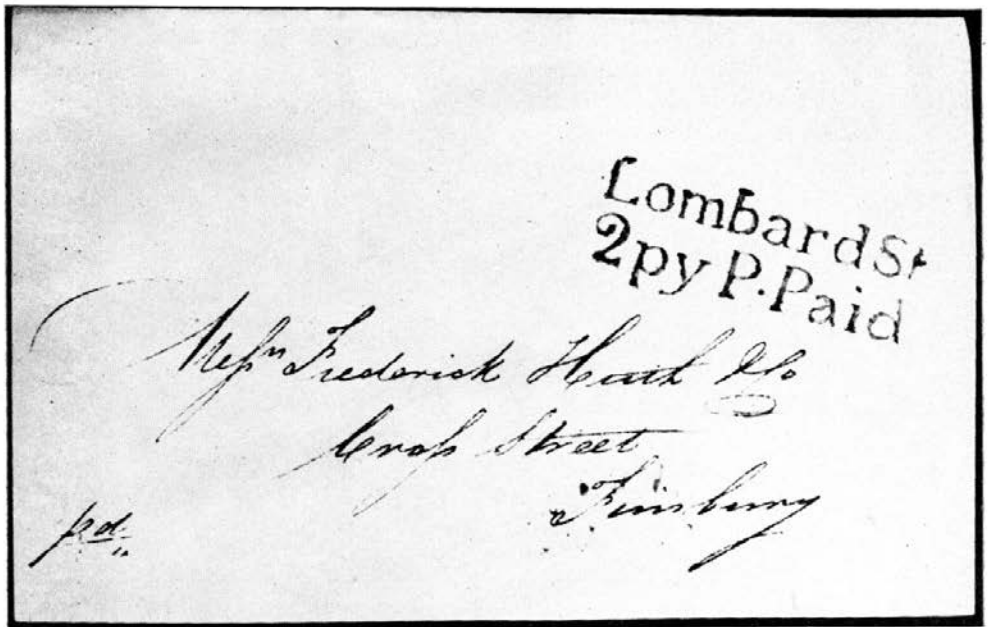 Lombard St
2py P.Paid
Messrs Frederick Huth & Co
Cross Street
Finsbury
pd